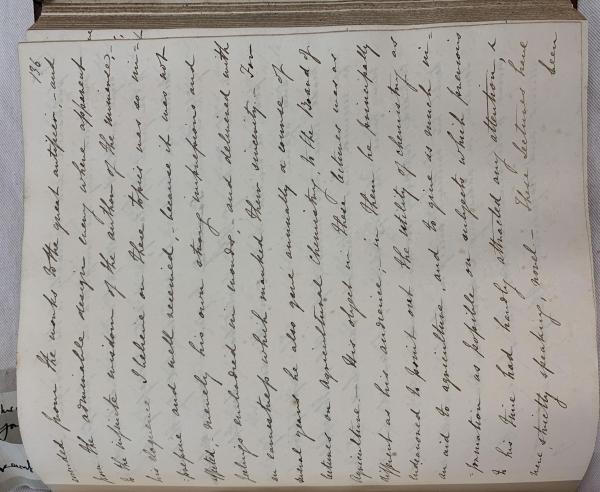 136
from the works to the great artificer; and
the admirable design every where apparent
to the infinite wisdom of the author of the universe;
his eloquence I believe on these topics was so
and well received, because it was not
merely his own strong impressions and
feelings embodied in words, and delivered with
an earnestness which marked their sincerity. For
several years he also gave annually a course of
lectures on Agricultural Chemistry, to the Board of
Agriculture. His object in these lectures was as
different as his audience; in them he principally
endeavoured to point out the utility of chemistry as
an aid to agriculture, and to give as much in-
formation as possible on subjects which previous
to his time had hardly attracted any attention, &
were strictly speaking novel. These lectures have
been